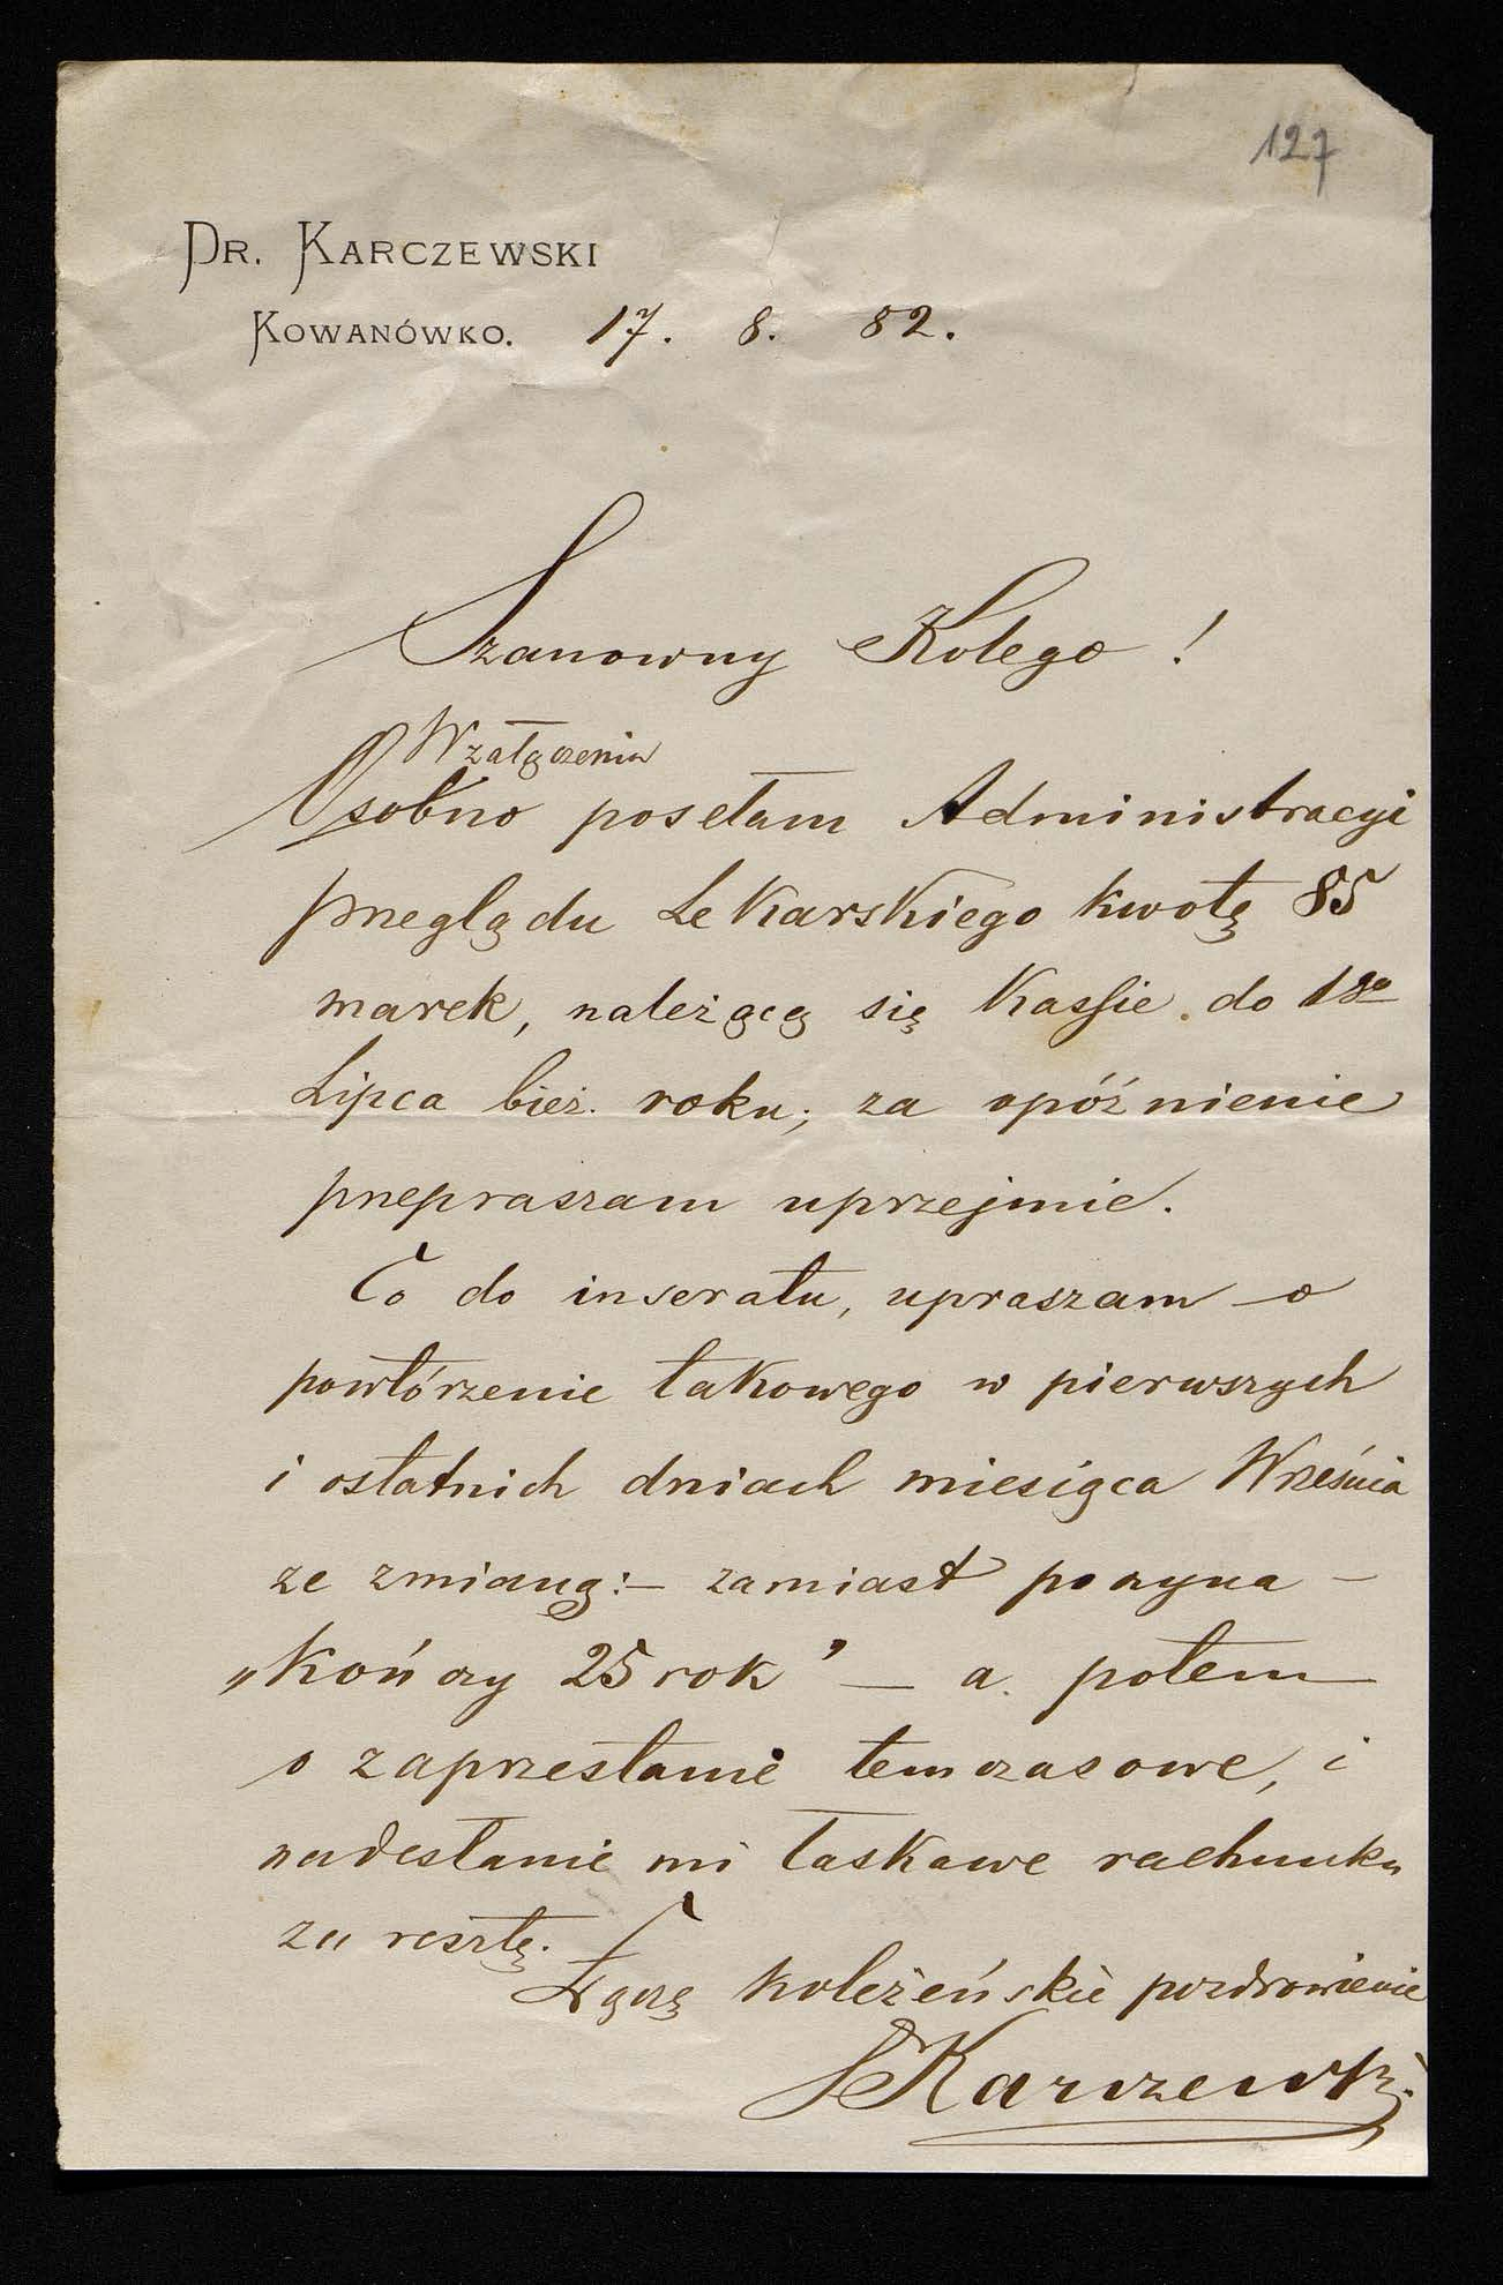 127
DR. KARCZEWSKI
KOWANÓWKO. 17. 8. 82.
Szanowny Kolego!
W załączeniu
Osobno posełam Administracyi
Przeglądu Lekarskiego kwotę 85
marek, należącą się Kassie do 1go
Lipca bież. roku; za opóźnienie
przepraszam uprzejmie.
Co do inseratu, upraszam o
powtórzenie takowego w pierwszych
i ostatnich dniach miesiąca Września
ze zmianą:— zamiast poczyna —
„kończy 25 rok" — a potem
o zaprzestanie temczasowe, i
nadesłanie mi łaskawe rachunku
za resztę.
Łączę koleżeńskie pozdrowienie
Karczewski